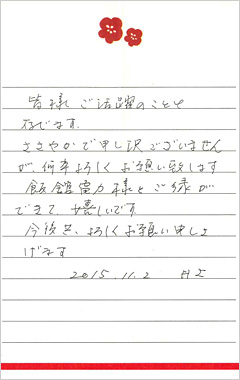 皆様ご活躍のことと
存じます。
ささやかで申し訳ございません
が、何卒よろしくお願い致します
飯舘電力様とご縁が
できて、嬉しいです。
今後も、よろしくお願い申し上
げます
2015.11.2